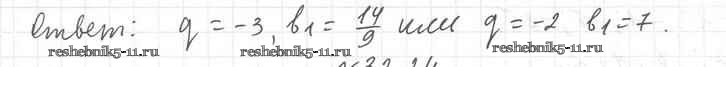 Ответ: q = -3, b₁ = 14/9 или q = -2 b₁ = 7.
reshebnik5-11.ru reshebnik5-11.ru reshebnik5-11.ru